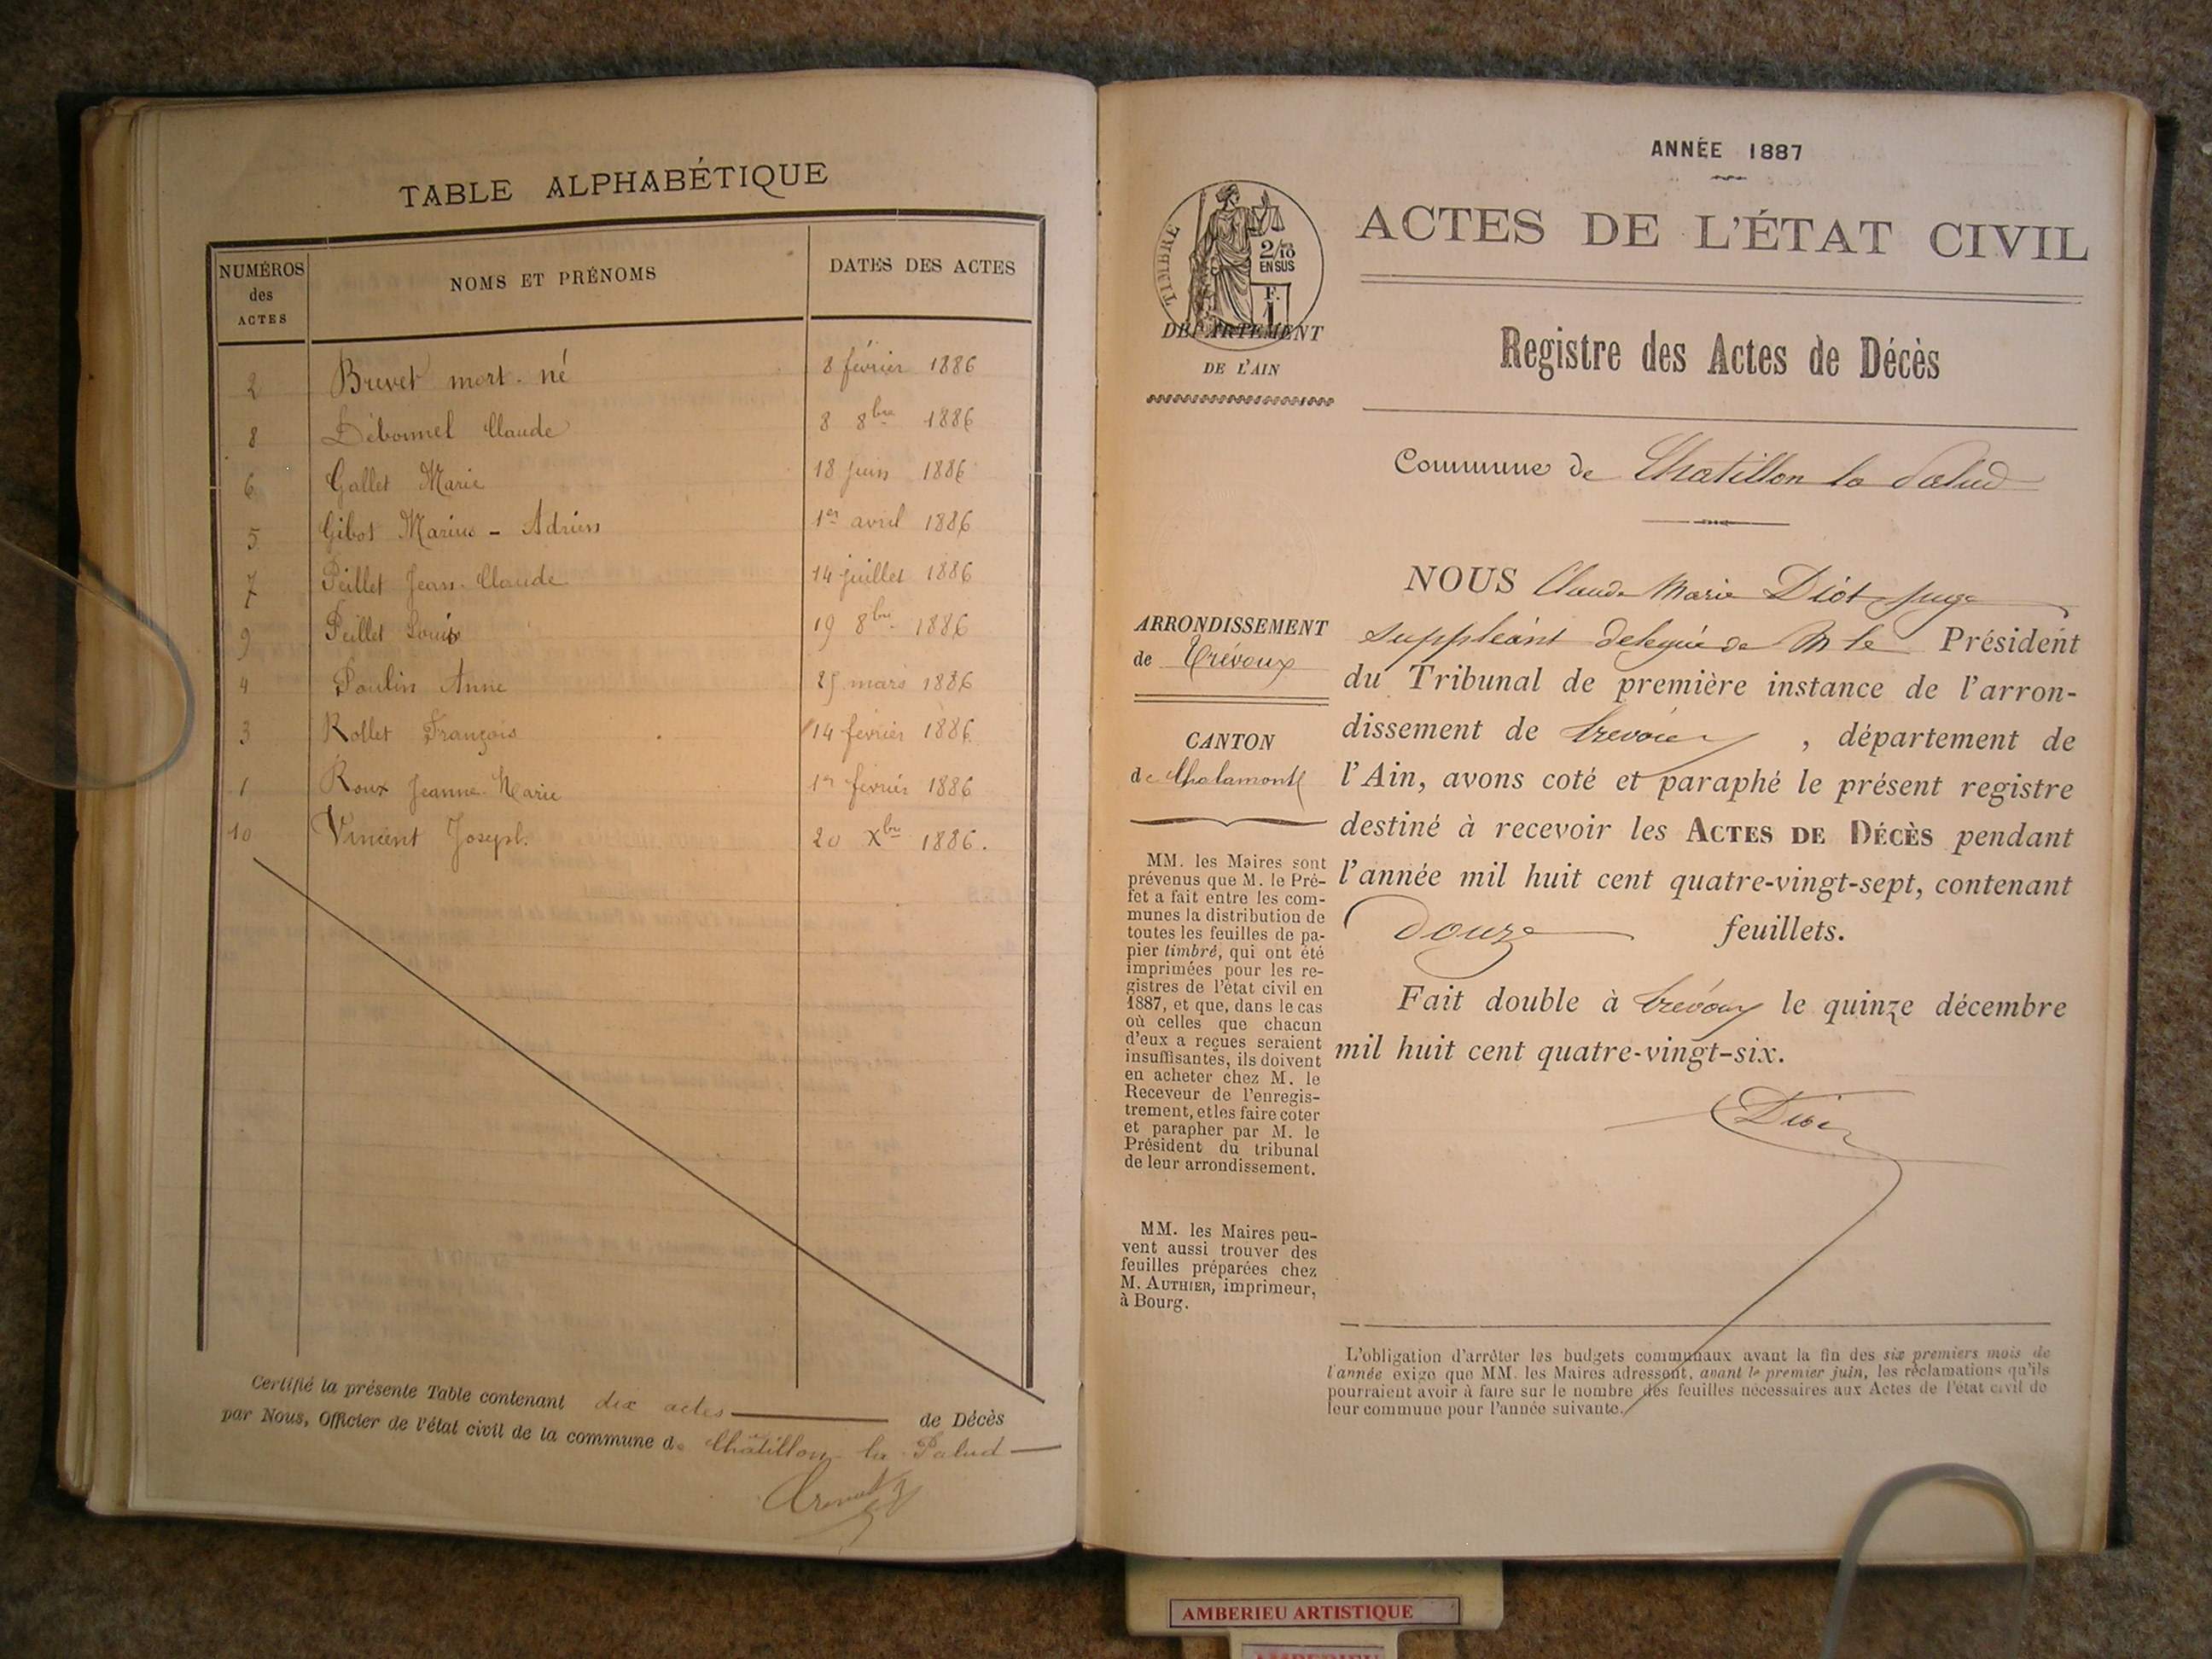 TABLE ALPHABÉTIQUE
NUMÉROS des ACTES
NOMS ET PRÉNOMS
DATES DES ACTES
2 Brevet mort-né 8 février 1886
8 Débonnel Claude 8 8bre 1886
6 Gallet Marie 18 juin 1886
5 Gibot Marius - Adrien 1er avril 1886
7 Peillet Jean-Claude 14 juillet 1886
9 Peillet Louis 19 8bre 1886
4 Poulin Anne mars 1886
3 Rollet François 14 février 1886
1 Roux Jeanne-Marie 1er février 1886
10 Vincent Joseph. 20 Xbre 1886.
Certifié la présente Table contenant dix actes de Décès
par Nous, Officier de l'état civil de la commune de Châtillon-la-Palud
ANNÉE 1887
ACTES DE L'ÉTAT CIVIL
TIMBRE
2/10
EN SUS
F.
1
DÉPARTEMENT
DE L'AIN
Registre des Actes de Décès
Commune de Chatillon la Palud
NOUS Claude Marie Diot juge
suppleant delegué de M le Président
du Tribunal de première instance de l'arron-
dissement de Trevoux, département de
l'Ain, avons coté et paraphé le présent registre
destiné à recevoir les ACTES DE DÉCÈS pendant
l'année mil huit cent quatre-vingt-sept, contenant
douze feuillets.
Fait double à Trévoux le quinze décembre
mil huit cent quatre-vingt-six.
Diot
ARRONDISSEMENT
de Trévoux
CANTON
de Chalamont
MM. les Maires sont
prévenus que M. le Pré-
fet a fait entre les com-
munes la distribution de
toutes les feuilles de pa-
pier timbré, qui ont été
imprimées pour les re-
gistres de l'état civil en
1887, et que, dans le cas
où celles que chacun
d'eux a reçues seraient
insuffisantes, ils doivent
en acheter chez M. le
Receveur de l'enregis-
trement, et les faire coter
et parapher par M. le
Président du tribunal
de leur arrondissement.
MM. les Maires peu-
vent aussi trouver des
feuilles préparées chez
M. AUTHIER, imprimeur,
à Bourg.
L'obligation d'arrêter les budgets communaux avant la fin des six premiers mois de
l'année exige que MM. les Maires adressent, avant le premier juin, les réclamations qu'ils
pourraient avoir à faire sur le nombre des feuilles nécessaires aux Actes de l'état civil de
leur commune pour l'année suivante.
AMBERIEU ARTISTIQUE
AMBERIEU